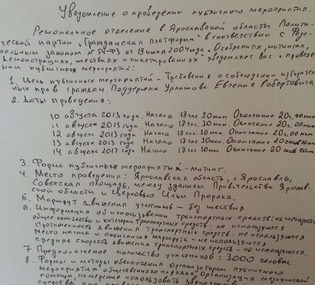 Уведомление о проведении публичного мероприятия.
Региональное отделение в Ярославской области Полити-
ческой партии "Гражданская платформа" в соответствии с Феде-
ральным законом №54-ФЗ от 19 июня 2004 года "О собраниях, митингах,
демонстрациях, шествиях и пикетированиях уведомляет вас о прове-
дении публичных мероприятий:
1. Цель публичного мероприятий - Требования о соблюдении избиратель-
ных прав граждан. Поддержка Урлашова Евгения Робертовича
2. Даты проведения:
10 августа 2013 года. Начало 18 час 30 мин. Окончание 20 ч. 00 мин
11 августа 2013 года. Начало 18 час 30 мин. Окончание 20 ч. 00 мин
12 августа 2013 года. Начало 18 час 30 мин. Окончание 20 ч. 00 мин
13 августа 2013 года. Начало 18 час 30 мин. Окончание 20 ч. 00 мин
14 августа 2013 года. Начало 18 час 30 мин. Окончание 20 ч. 00 мин
3. Форма публичных мероприятий - митинг.
4. Место проведения: Ярославская область, г. Ярославль,
Советская площадь, между зданием Правительства Ярослав-
ской области и церковью Ильи Пророка.
5. Маршрут движения участников - без шествия
6. Информация об использовании транспортных средств: не используются
общее количество и категория транспортных средств: не используются
Протяженность движения транспортных средств: не используются
Место начала и окончания маршрута - не используются
средняя скорость движения транспортных средств - не используются.
7. Предположение количество участников: 3000 человек
8. Формы и методы обеспечения организатором публичного
мероприятия общественного порядка, организация медицинской
помощи, намерение использовать